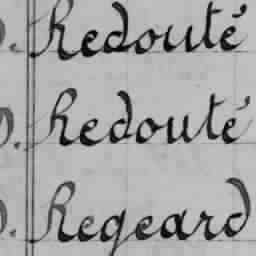 D. Redouté
D. Redouté
D. Regeard